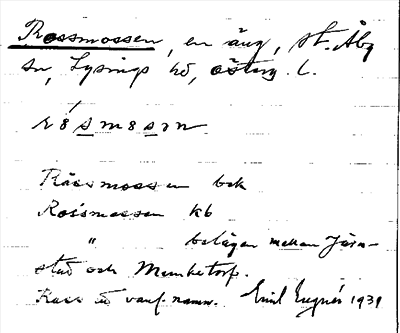 Rossmossen, en äng, St. Åby
sn, Lysings hd, Östg. l.
rósmosən
Råssmossen bek
Rossmossen kb
" belägen mellan Järn-
stad och Munketorp.
namn. Emil 1939